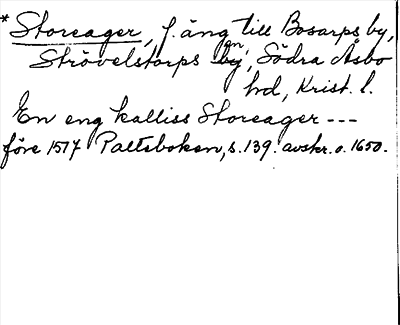 * Storeager, f. äng till Bosarps by,
Strövelstorps sn, Södra Åsbo
hd, Krist. l.
En eng kalliss Storeager ---
före 1517 Paltebokan, s. 139. avskr. o. 1650.